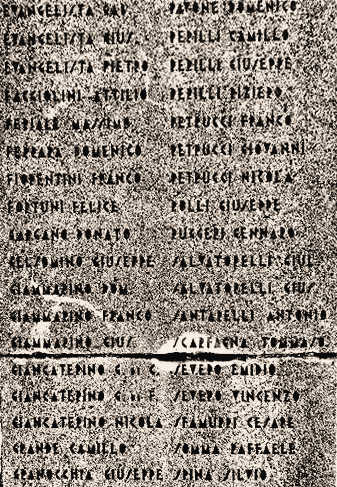 EVANGELISTA
EVANGELISTA GIUS.
EVANGELISTA PIETRO
FAGGIOLINI ATTILIO
FERIALE MASSIMO
FERRARA DOMENICO
FIORENTINI FRANCO
FORTUNI FELICE
GARGANO DONATO
GELSOMINO GIUSEPPE
GIAMMARINO DOM.
GIAMMARINO FRANCO
GIAMMARINO GIUS.
GIANCATERINO G. C.
GIANCATERINO F.
GIANCATERINO NICOLA
GRANDE CAMILLO
GRANOCCHIA GIUSEPPE
PAVONE DOMENICO
PERILLI CAMILLO
PERILLI GIUSEPPE
PERILLI PIZIERO
PETRUCCI FRANCO
PETRUCCI GIOVANNI
PETRUCCI NICOLA
POLLI GIUSEPPE
RUGGERI GENNARO
SALVATORELLI GIUL.
SALVATORELLI GIUS.
SANTARELLI ANTONIO
SCARFAGNA TOMMASO
SEVERO EMIDIO
SEVERO VINCENZO
SFAMURRI CESARE
SOMMA RAFFAELE
SPINA SILVIO